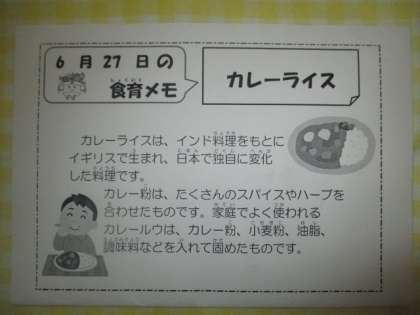 6月27日の
食育メモ
カレーライス
カレーライスは、インド料理をもとに
イギリスで生まれ、日本で独自に変化
した料理です。
カレー粉は、たくさんのスパイスやハーブを
合わせたものです。家庭でよく使われる
カレールウは、カレー粉、小麦粉、油脂、
調味料などを入れて固めたものです。